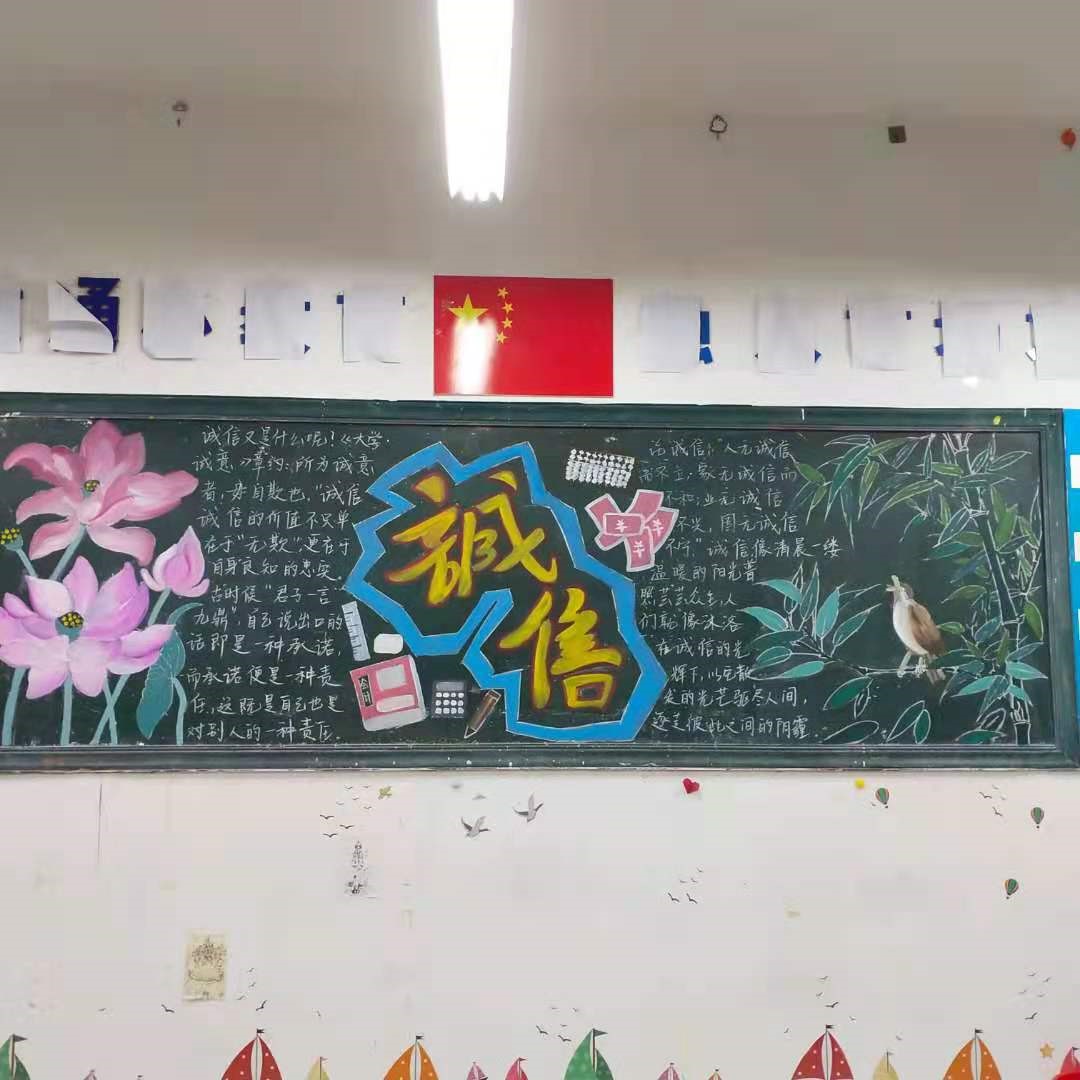 诚信又是什么呢?《大学·
诚意》章约:所为诚意
者,毋自欺也,"诚信
诚信的价值不只单
在于"无欺",更在于
自身良知的忠实。
古时候"君子一言"
九鼎",自己说出口的
话即是一种承诺,
而承诺便是一种责
任,这既是自己也是
对别人的一种责任。
誠
信
诚信:"人无诚信
不立;家无诚信而
不和;业无诚信
不兴,国无诚信
不宁"诚信像清晨一缕
温暖的阳光普
照芸芸众生,人
们能像沐浴
在诚信的光
辉下,以它散
发的光芒驱尽人间,
逐走彼此之间的阴霾